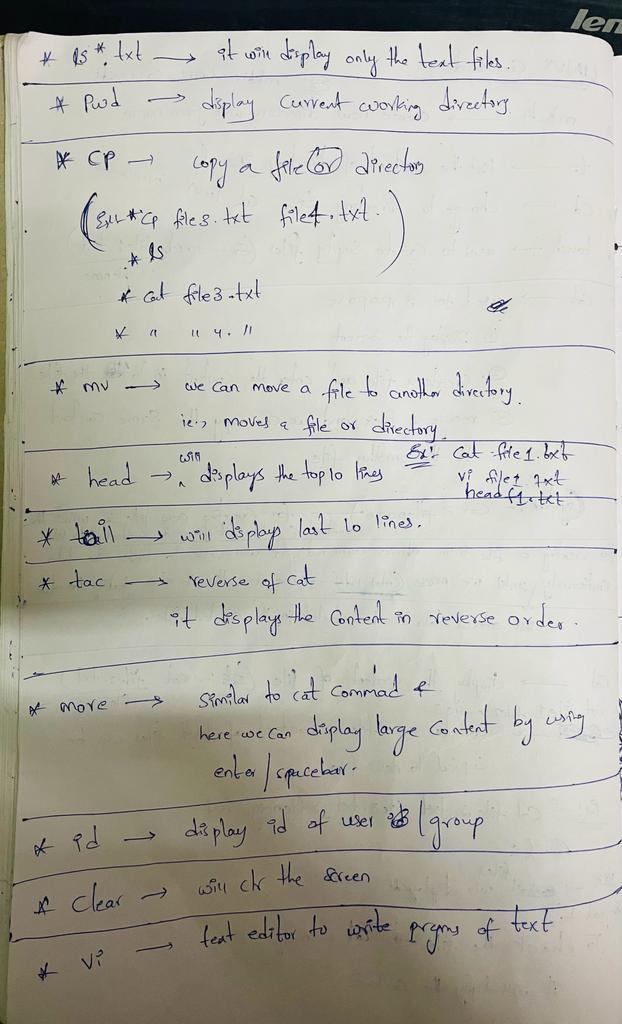 len
* ls *.txt → it will display only the text files.
* Pwd → display current working directory.
* CP → copy a file (or) directory
(Ex:- * Cp file3.txt file4.txt.)
* ls
* cat file3.txt
* " " 4. "
* mv → we can move a file to another directory.
ie., moves a file or directory.
* head → will displays the top 10 lines Ex:- Cat file1.txt
vi file1.txt
head f1.txt
* tail → will displays last 10 lines.
* tac → reverse of cat
it displays the content in reverse order.
* more → Similar to cat Commad &
here we can display large content by using
enter/spacebar.
* id → display id of user / group
* Clear → will clr the screen
* Vi → text editor to write prgms of text